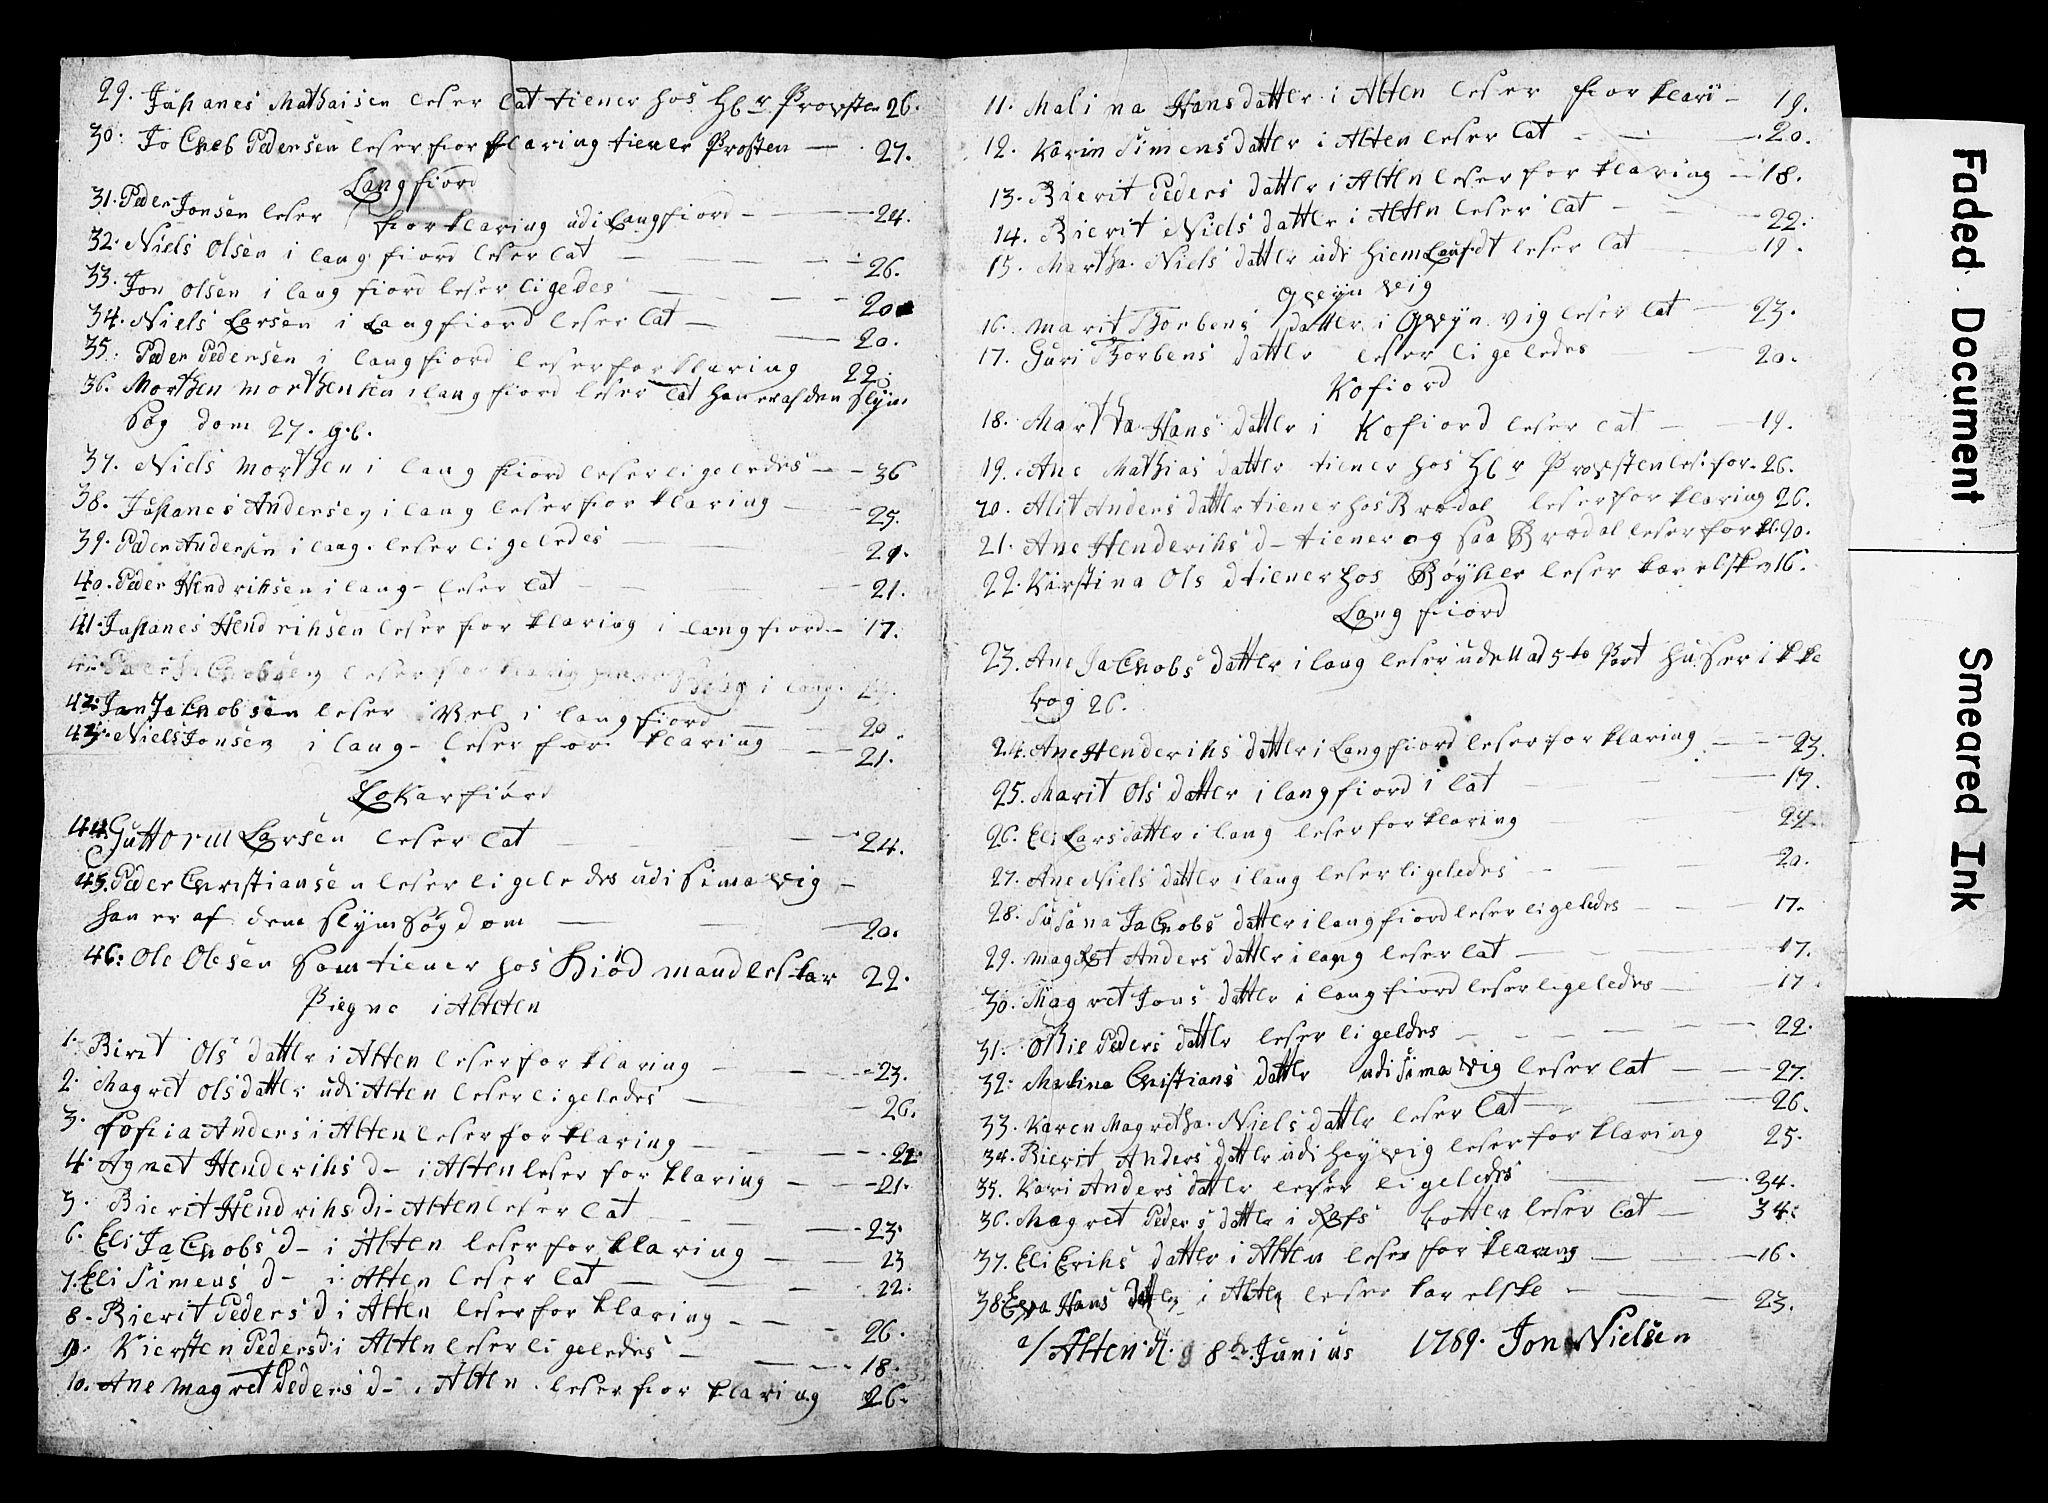 29. Johanes Mathaisen leser Cat tiener hos Hr Provsten 26.
30. Jo Cheb Pedersen leser for klaring tiener Prosten — 27.
Langfiord
31. Peder Jonsen leser for klaring udi Langfiord — 24.
32. Niels Olsen i lang fiord leser Cat — 26.
33. Jon Olsen i lang fiord leser ligedes — 20
34. Niels Larsen i Langfiord leser Cat — 20.
35. Peder Pedersen i langfiord leser for klaring 22.
36. Morthen Morthensen i langfiord leser Cat han er af den slym
søg dom 27. g.b.
37. Niels Morthen i lang fiord leser ligeledes — 36
38. Johanes Andersen i lang leser for klaring — 25.
39. Peder Andersen i lang. leser ligeledes — 21.
40. Peder Hendrihsen i lang — leser Cat — 21.
41. Johanes Hendrihsen leser for klaring i langfiord — 17.
leser for klaring i lang.
42. Jon JaChobsen leser Vel i langfiord — 20.
43. Niels Jonsen i lang — leser for klaring — 21.
Lokarfiord
44. Guttorm Larsen leser Cat — 24.
45. Peder Christiansen leser ligeledes udi Simavig —
han er af dem slym søgdom — 20.
46. Ole Olesen Som tiener hos Kiöd mand leskar 22.
Piegne i Alteten
1. Biret Ols dattler i Alten leser for klaring — 23.
2. Magret Ols dattler udi Alten leser ligeledes — 26.
3. Sofeia Anders i Alten leser for klaring — 22
4. Agnet Henderihs d — i Alten leser for klaring — 21.
5. Bierit Hendrihs d i — Alten leser Cat — 23.
6. Eli JaChobs d — i Alten leser for klaring — 23
7. Eli Simens d — i Alten leser Cat — 22.
8. Bierit Peders d i Alten leser for klaring — 26.
9. Kiersten Peders d i Alten leser ligeledes — 18.
10. Ane Magret Peders d — i Alten leser for klaring 26.
11. Malina Hans dattler i Alten leser for klari — 19.
12. Karin Simens dattler i Alten leser Cat — 20.
13. Bierit Peders dattler i Alten leser for klaring — 18.
14. Bierit Niels dattler i Alten leser Cat — 22.
15. Martha Niels dattler udi hiemLandt leser Cat — 19.
Qvÿn vig
16. Marit Thorbens dattler i Qvÿn vig leser Cat — 23.
17. Guri Thorbens dattler leser ligeledes — 20.
Kofiord
18. Martha Hans dattler i Kofiord leser Cat — 19.
19. Ane Mathias dattler tiener hos Hr Provsten les: for. 26.
20. Alit Anders dattler tiener hos Brodal leser for klaring 26.
21. Ane Henderihs d — tiener og saa Brodal leser for kl: 20.
22. Kirstina Ols d tiener hos Røÿker leser kar elsk 16.
Lang fiord
23. Ane JaChobs dattler i lang leser uden ad 5 to Part huser ikke
bog 26.
24. Ane Henderihs dattler i Langfiord leser for klaring — 23.
25. Marit Ols dattler i langfiord i Cat — 17.
26. Eli Lars dattler i lang leser for klaring — 22.
27. Ane Niels dattler i lang leser ligeledes — 20.
28. Susana JaChobs dattler i langfiord leser ligeledes — 17.
29. Magret Anders dattler i lang leser Cat — 17.
30. Magret Jons dattler i langfiord leser ligeledes — 17.
31. Peders dattler leser ligeldes — 22.
32. Malina Christians dattler udi Sima vig leser Cat — 27.
33. Karen Magretha Niels dattler leser Cat — 26.
34. Bierit Anders dattler udi heÿ vig leser for klaring 25.
35. Kari Anders dattler leser ligeledes — 34.
36. Magret Peders dattler i Rafs botten leser Cat — 34.
37. Eli Erihs dattler i Alten leser for klaring — 16.
38. Eva Hans dattler i Alten leser kar elske — 23.
a/ Alten d. 8de Junius 1789. Jon Nielsen
Faded Document
Smeared Ink